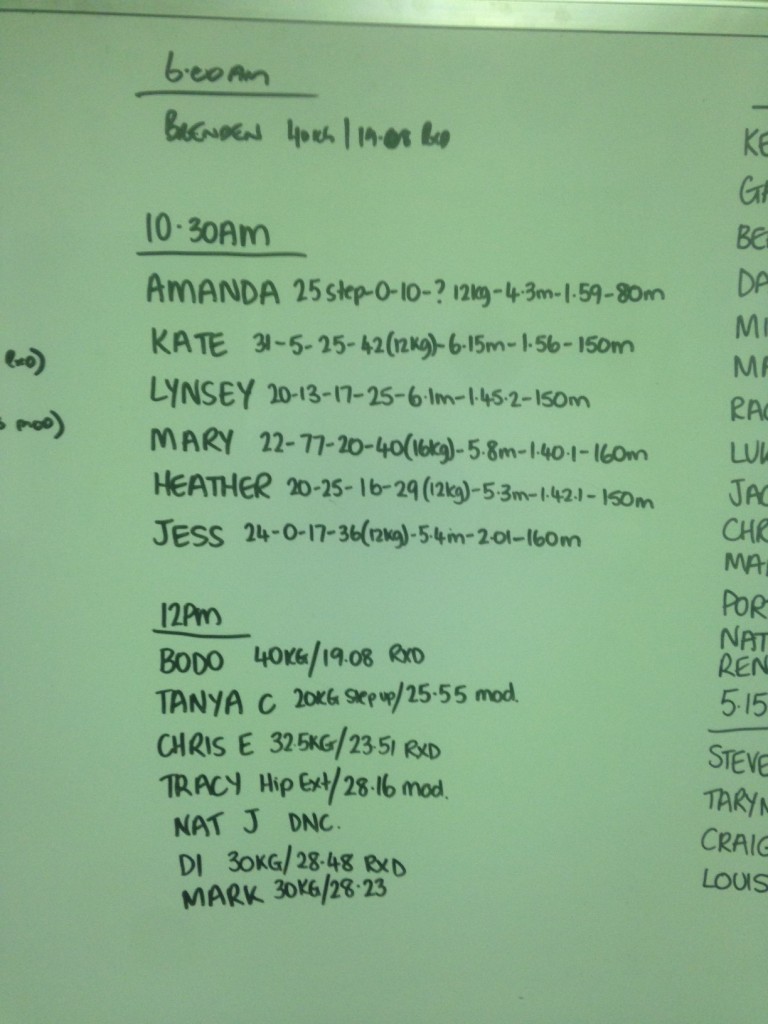 6:00AM
BRENDEN 40KG | 19.08 RXD
10.30AM
AMANDA 25 step-0-10-? 12kg-4.3m-1.59-80m
KATE 31-5-25-42(12kg)-6.15m-1.56-150m
LYNSEY 20-13-17-25-6.1m-1.45.2-150m
MARY 22-77-20-40(16kg)-5.8m-1.40.1-160m
HEATHER 20-25-16-29(12kg)-5.3m-1.42.1-150m
JESS 24-0-17-36(12kg)-5.4m-2.01-160m
12PM
BODO 40KG/19.08 RXD
TANYA C 20KG Step up/25.55 mod.
CHRIS E 32.5KG/23.51 RXD
TRACY Hip Ext/28.16 mod.
NAT J DNC.
DI 30KG/28.48 RXD
MARK 30KG/28.23
KE
GA
BE
DA
MI
MA
RAC
LUK
JAC
CHR
MAR
POR
NAT
REN
5.15
STEVE
TARYN
CRAIG
LOUIS